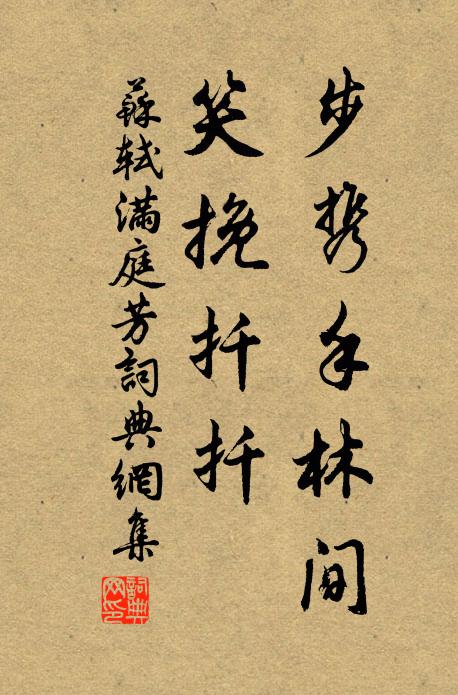 步携手林間
笑挽扦扦
蘇軾滿庭芳詞典網集
詞典
网印